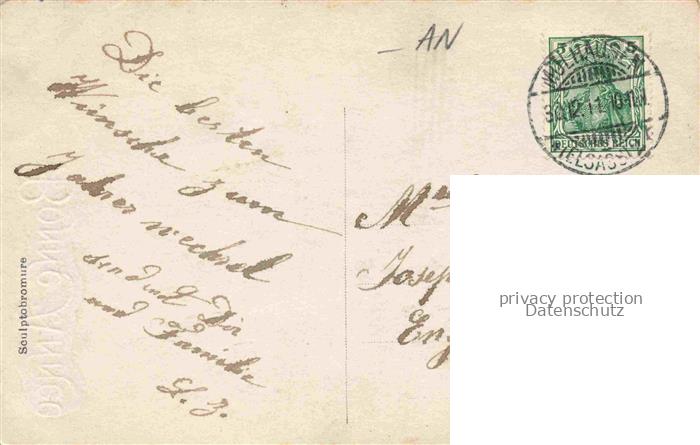 AN
Die besten
Wünsche zum
Jahreswechsel
sendet Dir
und Familie
L. Z.
Sculptobromure
Bonne Année
5 5
MÜLHAUSEN
30.12.11.
(ELSASS)
DEUTSCHES REICH
Mme
Josep
Eng
privacy protection
Datenschutz